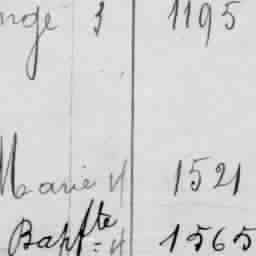 nge 3 1195
Marie 4 1521
Bapte 4 1565